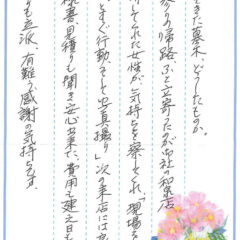 るまた墓木、どうしたものか。
参りの帰路ふと立寄ったが当社の和泉店
してくれた女性が気持ちを察してくれ、「現場を
とすぐ行動をして写真撮り」次の来店には
様書見積りも聞き安心出来た、費用も建之日も
も立派、有難う感謝の気持ちです。